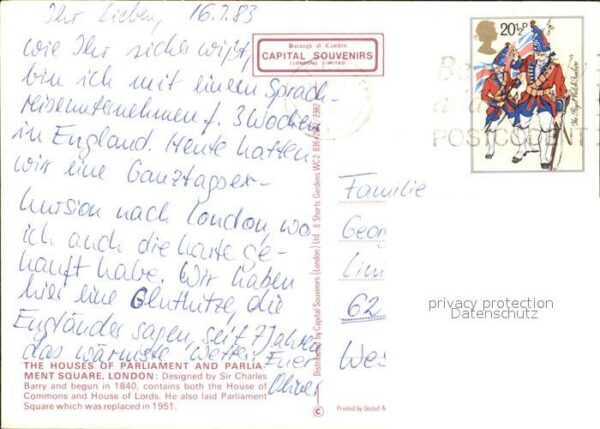 Ihr Lieben, 16.7.83
wie Ihr sicher wißt,
bin ich mit einem Sprach-
reiseunternehmen f. 3 Wochen
in England. Heute hatten
wir eine Ganztagsex-
kursion nach London, wo
ich auch die Karte ge-
kauft habe. Wir haben
hier eine Gluthitze, die
Engländer sagen, seit 7 Jahren
das wärmste Wetter. Euer
Oliver
THE HOUSES OF PARLIAMENT AND PARLIA-
MENT SQUARE, LONDON: Designed by Sir Charles
Barry and begun in 1840, contains both the House of
Commons and House of Lords. He also laid Parliament
Square which was replaced in 1951.
Borough of Camden
CAPITAL SOUVENIRS
(LONDON) LIMITED
Distributed by Capital Souvenirs (London) Ltd. 8 Shorts Gardens WC2 836
2382
©
Printed by United
20½P
The Royal Welch Fusiliers
POSTCODE
Familie
Geor
Lin
62
privacy protection
Datenschutz